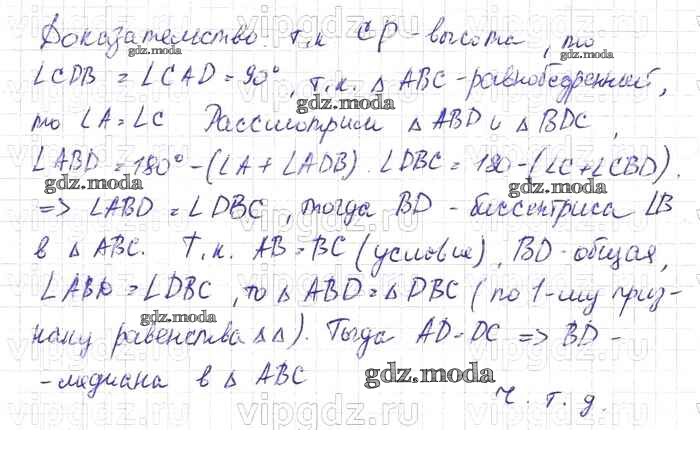 Доказательство: т.к CD - высота, то
∠CDB = ∠CAD = 90°, т.к. △ ABC - равнобедренный,
то ∠A = ∠C Рассмотрим △ ABD и △ BDC,
∠ABD = 180° - (∠A + ∠ADB). ∠DBC = 180 - (∠C + ∠CBD).
=> ∠ABD = ∠DBC, тогда BD - биссектриса ∠B
в △ ABC. Т.к. AB = BC (условие), BD - общая,
∠ABD = ∠DBC, то △ ABD = △ DBC (по 1-му приз-
наку равенства △△). Тогда AD = DC => BD -
- медиана в △ ABC
Ч. т. д.
gdz.moda
gdz.moda
gdz.moda
gdz.moda
gdz.moda
gdz.moda
gdz.moda
vipgdz.ru